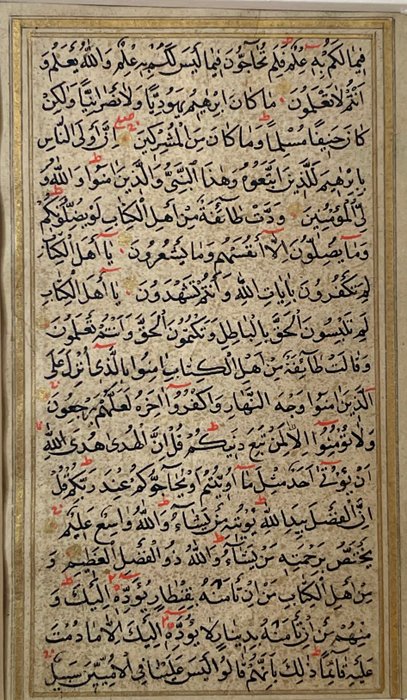 فِيمَا لَكُمْ بِهِ عِلْمٌ فَلِمَ تُحَاجُّونَ فِيمَا لَيْسَ لَكُمْ بِهِ عِلْمٌ وَاللَّهُ يَعْلَمُ وَ
أَنْتُمْ لَا تَعْلَمُونَ مَا كَانَ إِبْرٰهِيمُ يَهُودِيًّا وَلَا نَصْرَانِيًّا وَلٰكِنْ
كَانَ حَنِيفًا مُسْلِمًا وَمَا كَانَ مِنَ الْمُشْرِكِينَ إِنَّ أَوْلَى النَّاسِ
بِإِبْرٰهِيمَ لَلَّذِينَ اتَّبَعُوهُ وَهٰذَا النَّبِيُّ وَالَّذِينَ اٰمَنُوا وَاللَّهُ وَ
لِيُّ الْمُؤْمِنِينَ وَدَّتْ طَائِفَةٌ مِنْ أَهْلِ الْكِتَابِ لَوْ يُضِلُّونَكُمْ
وَمَا يُضِلُّونَ إِلَّا أَنْفُسَهُمْ وَمَا يَشْعُرُونَ يَا أَهْلَ الْكِتَابِ
لِمَ تَكْفُرُونَ بِاٰيَاتِ اللَّهِ وَأَنْتُمْ تَشْهَدُونَ يَا أَهْلَ الْكِتَابِ
لِمَ تَلْبِسُونَ الْحَقَّ بِالْبَاطِلِ وَتَكْتُمُونَ الْحَقَّ وَأَنْتُمْ تَعْلَمُونَ
وَقَالَتْ طَائِفَةٌ مِنْ أَهْلِ الْكِتَابِ اٰمِنُوا بِالَّذِي أُنْزِلَ عَلَى
الَّذِينَ اٰمَنُوا وَجْهَ النَّهَارِ وَاكْفُرُوا اٰخِرَهُ لَعَلَّهُمْ يَرْجِعُونَ
وَلَا تُؤْمِنُوا إِلَّا لِمَنْ تَبِعَ دِينَكُمْ قُلْ إِنَّ الْهُدَى هُدَى اللَّهِ
أَنْ يُؤْتَى أَحَدٌ مِثْلَ مَا أُوتِيتُمْ أَوْ يُحَاجُّوكُمْ عِنْدَ رَبِّكُمْ قُلْ
إِنَّ الْفَضْلَ بِيَدِ اللَّهِ يُؤْتِيهِ مَنْ يَشَاءُ وَاللَّهُ وَاسِعٌ عَلِيمٌ
يَخْتَصُّ بِرَحْمَتِهِ مَنْ يَشَاءُ وَاللَّهُ ذُو الْفَضْلِ الْعَظِيمِ وَ
مِنْ أَهْلِ الْكِتَابِ مَنْ إِنْ تَأْمَنْهُ بِقِنْطَارٍ يُؤَدِّهِ إِلَيْكَ وَ
مِنْهُمْ مَنْ إِنْ تَأْمَنْهُ بِدِينَارٍ لَا يُؤَدِّهِ إِلَيْكَ إِلَّا مَا دُمْتَ
عَلَيْهِ قَائِمًا ذٰلِكَ بِأَنَّهُمْ قَالُوا لَيْسَ عَلَيْنَا فِي الْأُمِّيِّينَ سَبِيلٌ